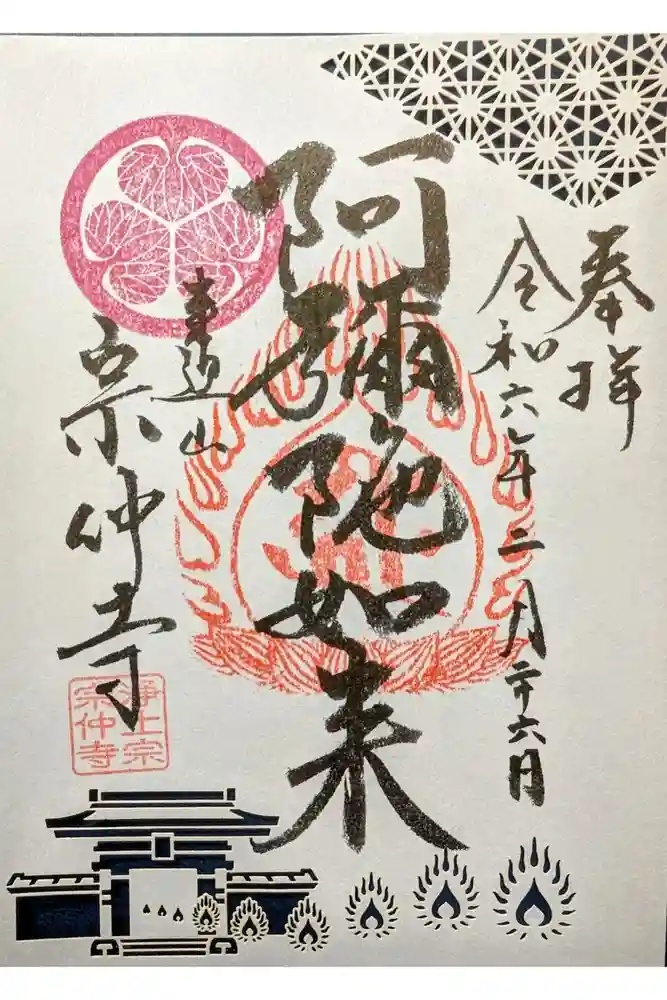 奉拝
令和六年二月二十六日
阿彌陀如来
宗仲寺
浄土宗
宗仲寺